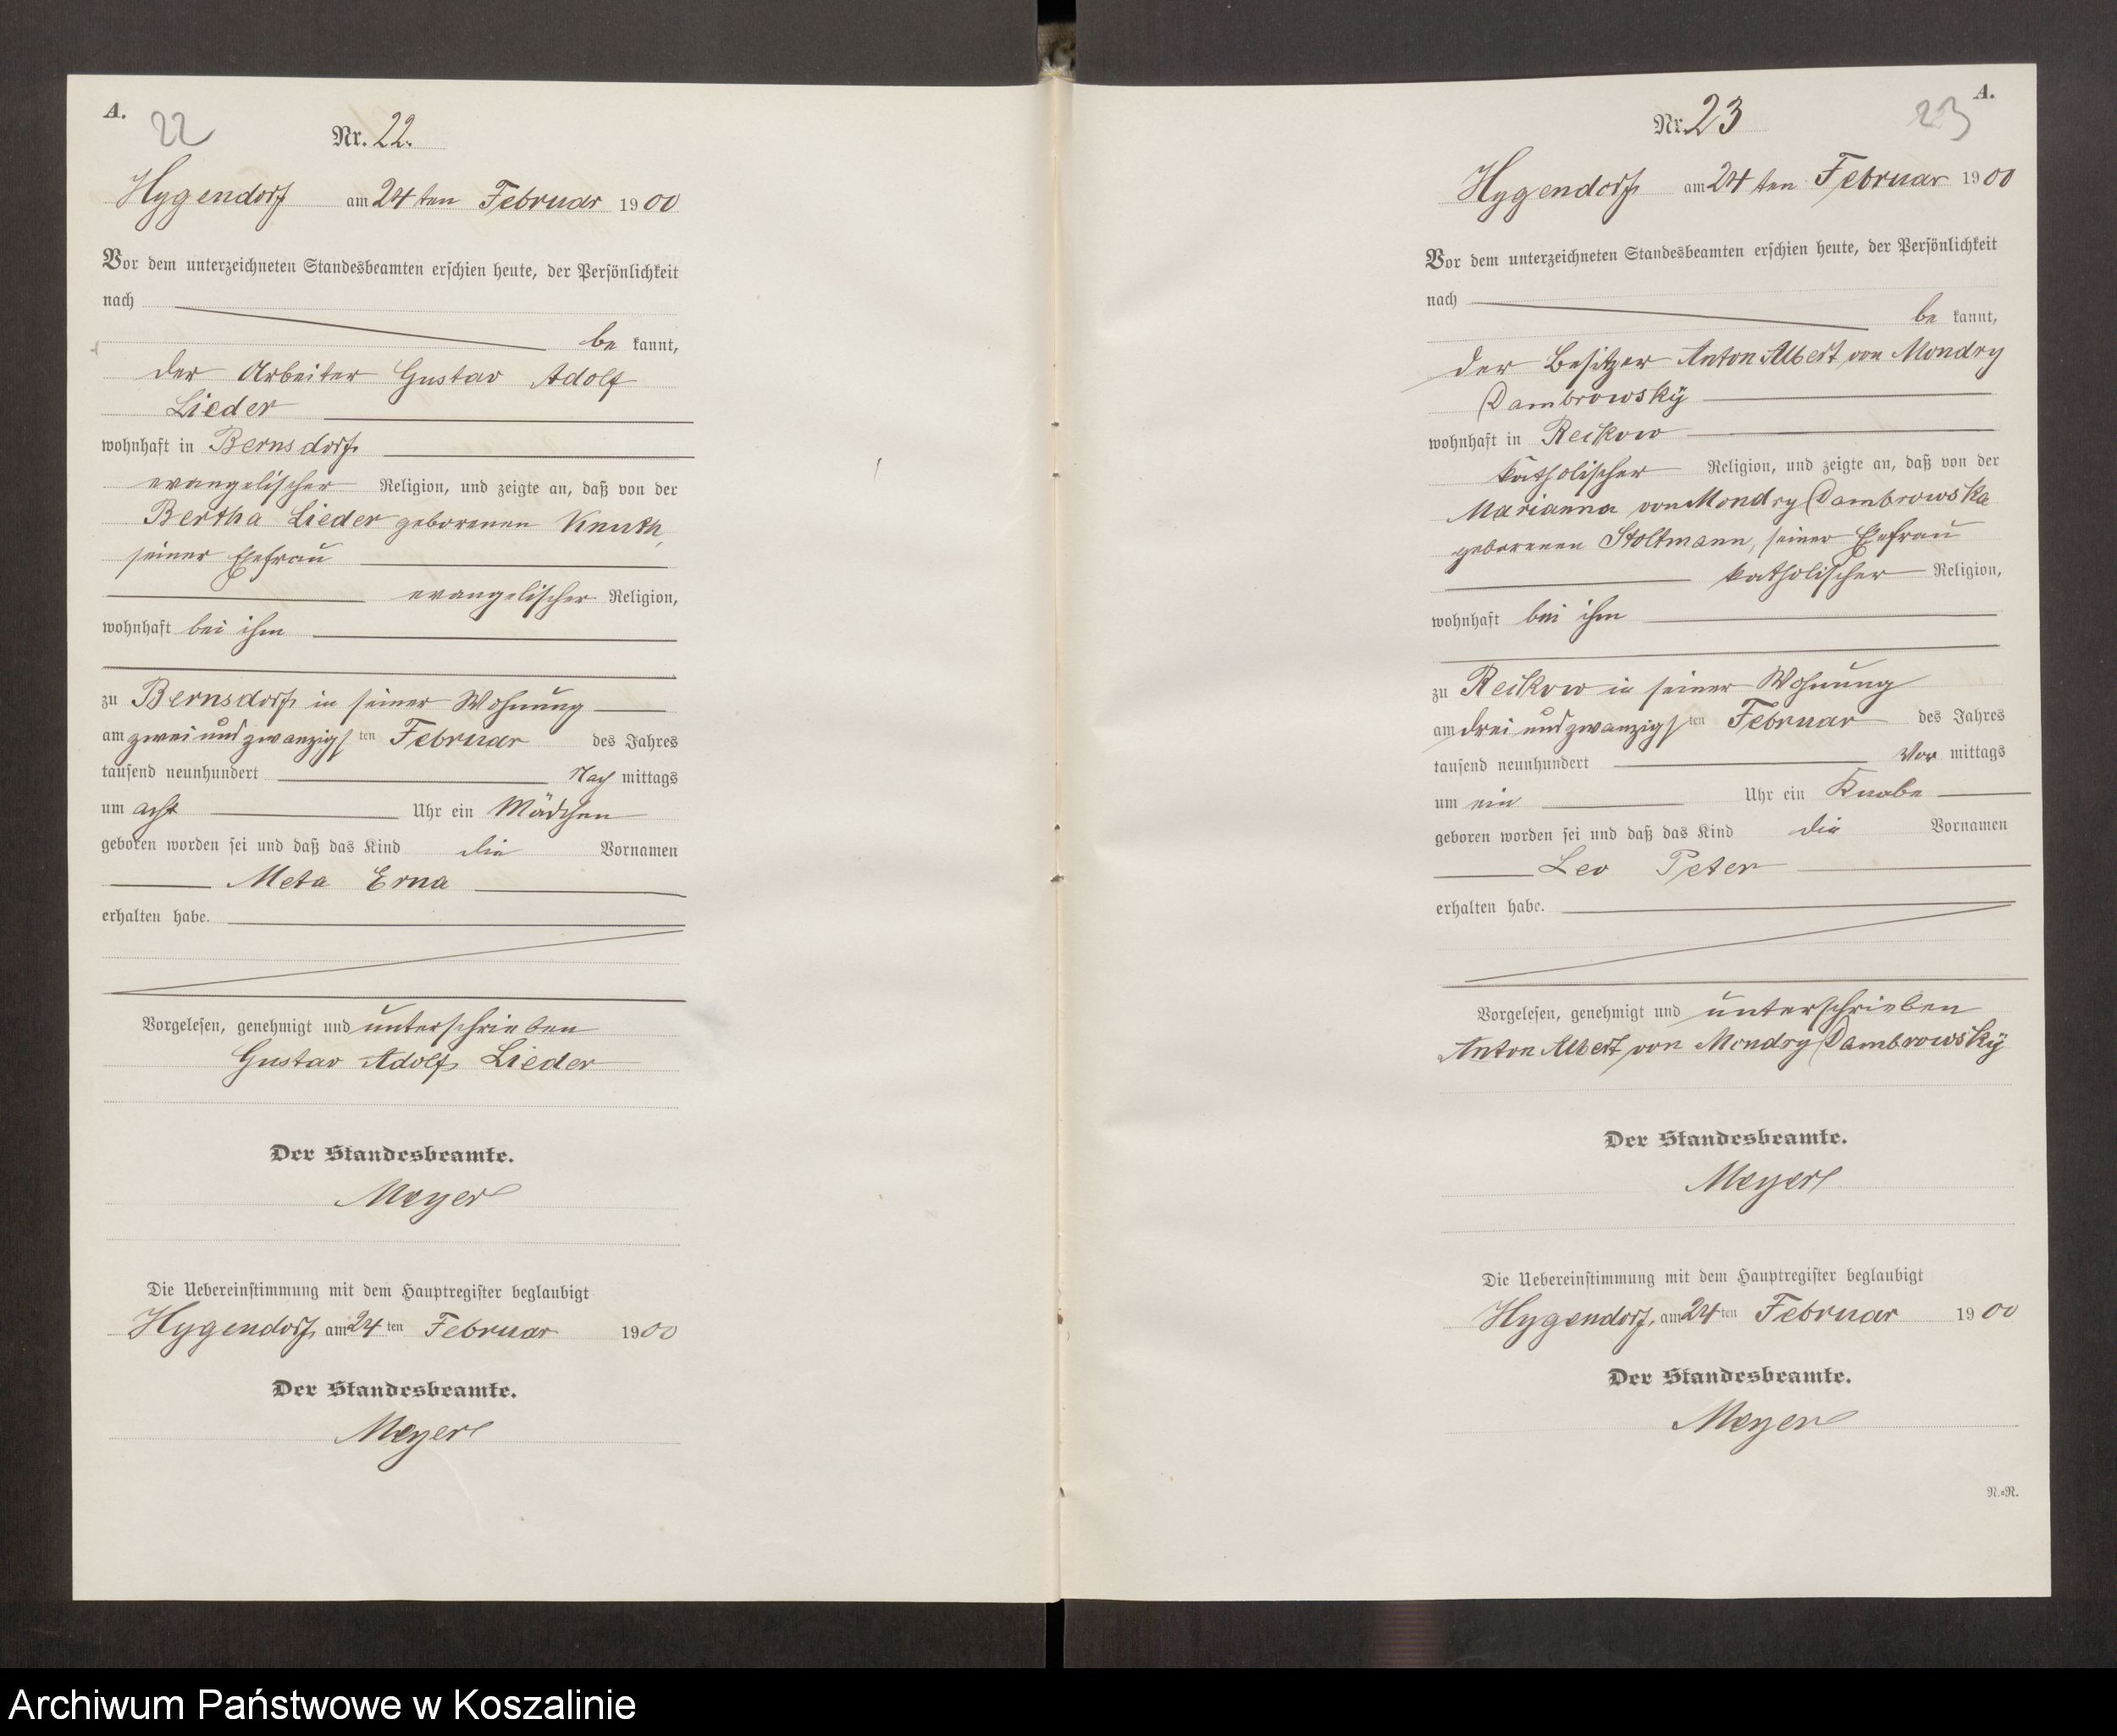 A.
22
Nr. 22.
Hygendorf am 24 ten Februar 1900
Vor dem unterzeichneten Standesbeamten erschien heute, der Persönlichkeit
nach
be kannt,
der Arbeiter Gustav Adolf
Lieder
wohnhaft in Bernsdorf
evangelischer Religion, und zeigte an, daß von der
Bertha Lieder geborenen Knuth,
seiner Ehefrau
evangelischer Religion,
wohnhaft bei ihm
zu Bernsdorf in seiner Wohnung
am zwei und zwanzigsten Februar des Jahres
tausend neunhundert Nach mittags
um acht Uhr ein Mädchen
geboren worden sei und daß das Kind die Vornamen
Meta Erna
erhalten habe.
Vorgelesen, genehmigt und unterschrieben
Gustav Adolf Lieder
Der Standesbeamte.
Meyer
Die Uebereinstimmung mit dem Hauptregister beglaubigt
Hygendorf, am 24 ten Februar 1900
Der Standesbeamte.
Meyer
A.
23
Nr. 23
Hygendorf am 24 ten Februar 1900
Vor dem unterzeichneten Standesbeamten erschien heute, der Persönlichkeit
nach
be kannt,
der Besitzer Anton Albert von Mondry
Dambrowskÿ
wohnhaft in Reckow
katholischer Religion, und zeigte an, daß von der
Marianna von Mondry Dambrowska
geborenen Stoltmann, seiner Ehefrau
katholischer Religion,
wohnhaft bei ihm
zu Reckow in seiner Wohnung
am drei und zwanzigsten Februar des Jahres
tausend neunhundert Vor mittags
um ein Uhr ein Knabe
geboren worden sei und daß das Kind die Vornamen
Leo Peter
erhalten habe.
Vorgelesen, genehmigt und unterschrieben
Anton Albert von Mondry Dambrowskÿ
Der Standesbeamte.
Meyer
Die Uebereinstimmung mit dem Hauptregister beglaubigt
Hygendorf, am 24 ten Februar 1900
Der Standesbeamte.
Meyer
N.=R.
Archiwum Państwowe w Koszalinie